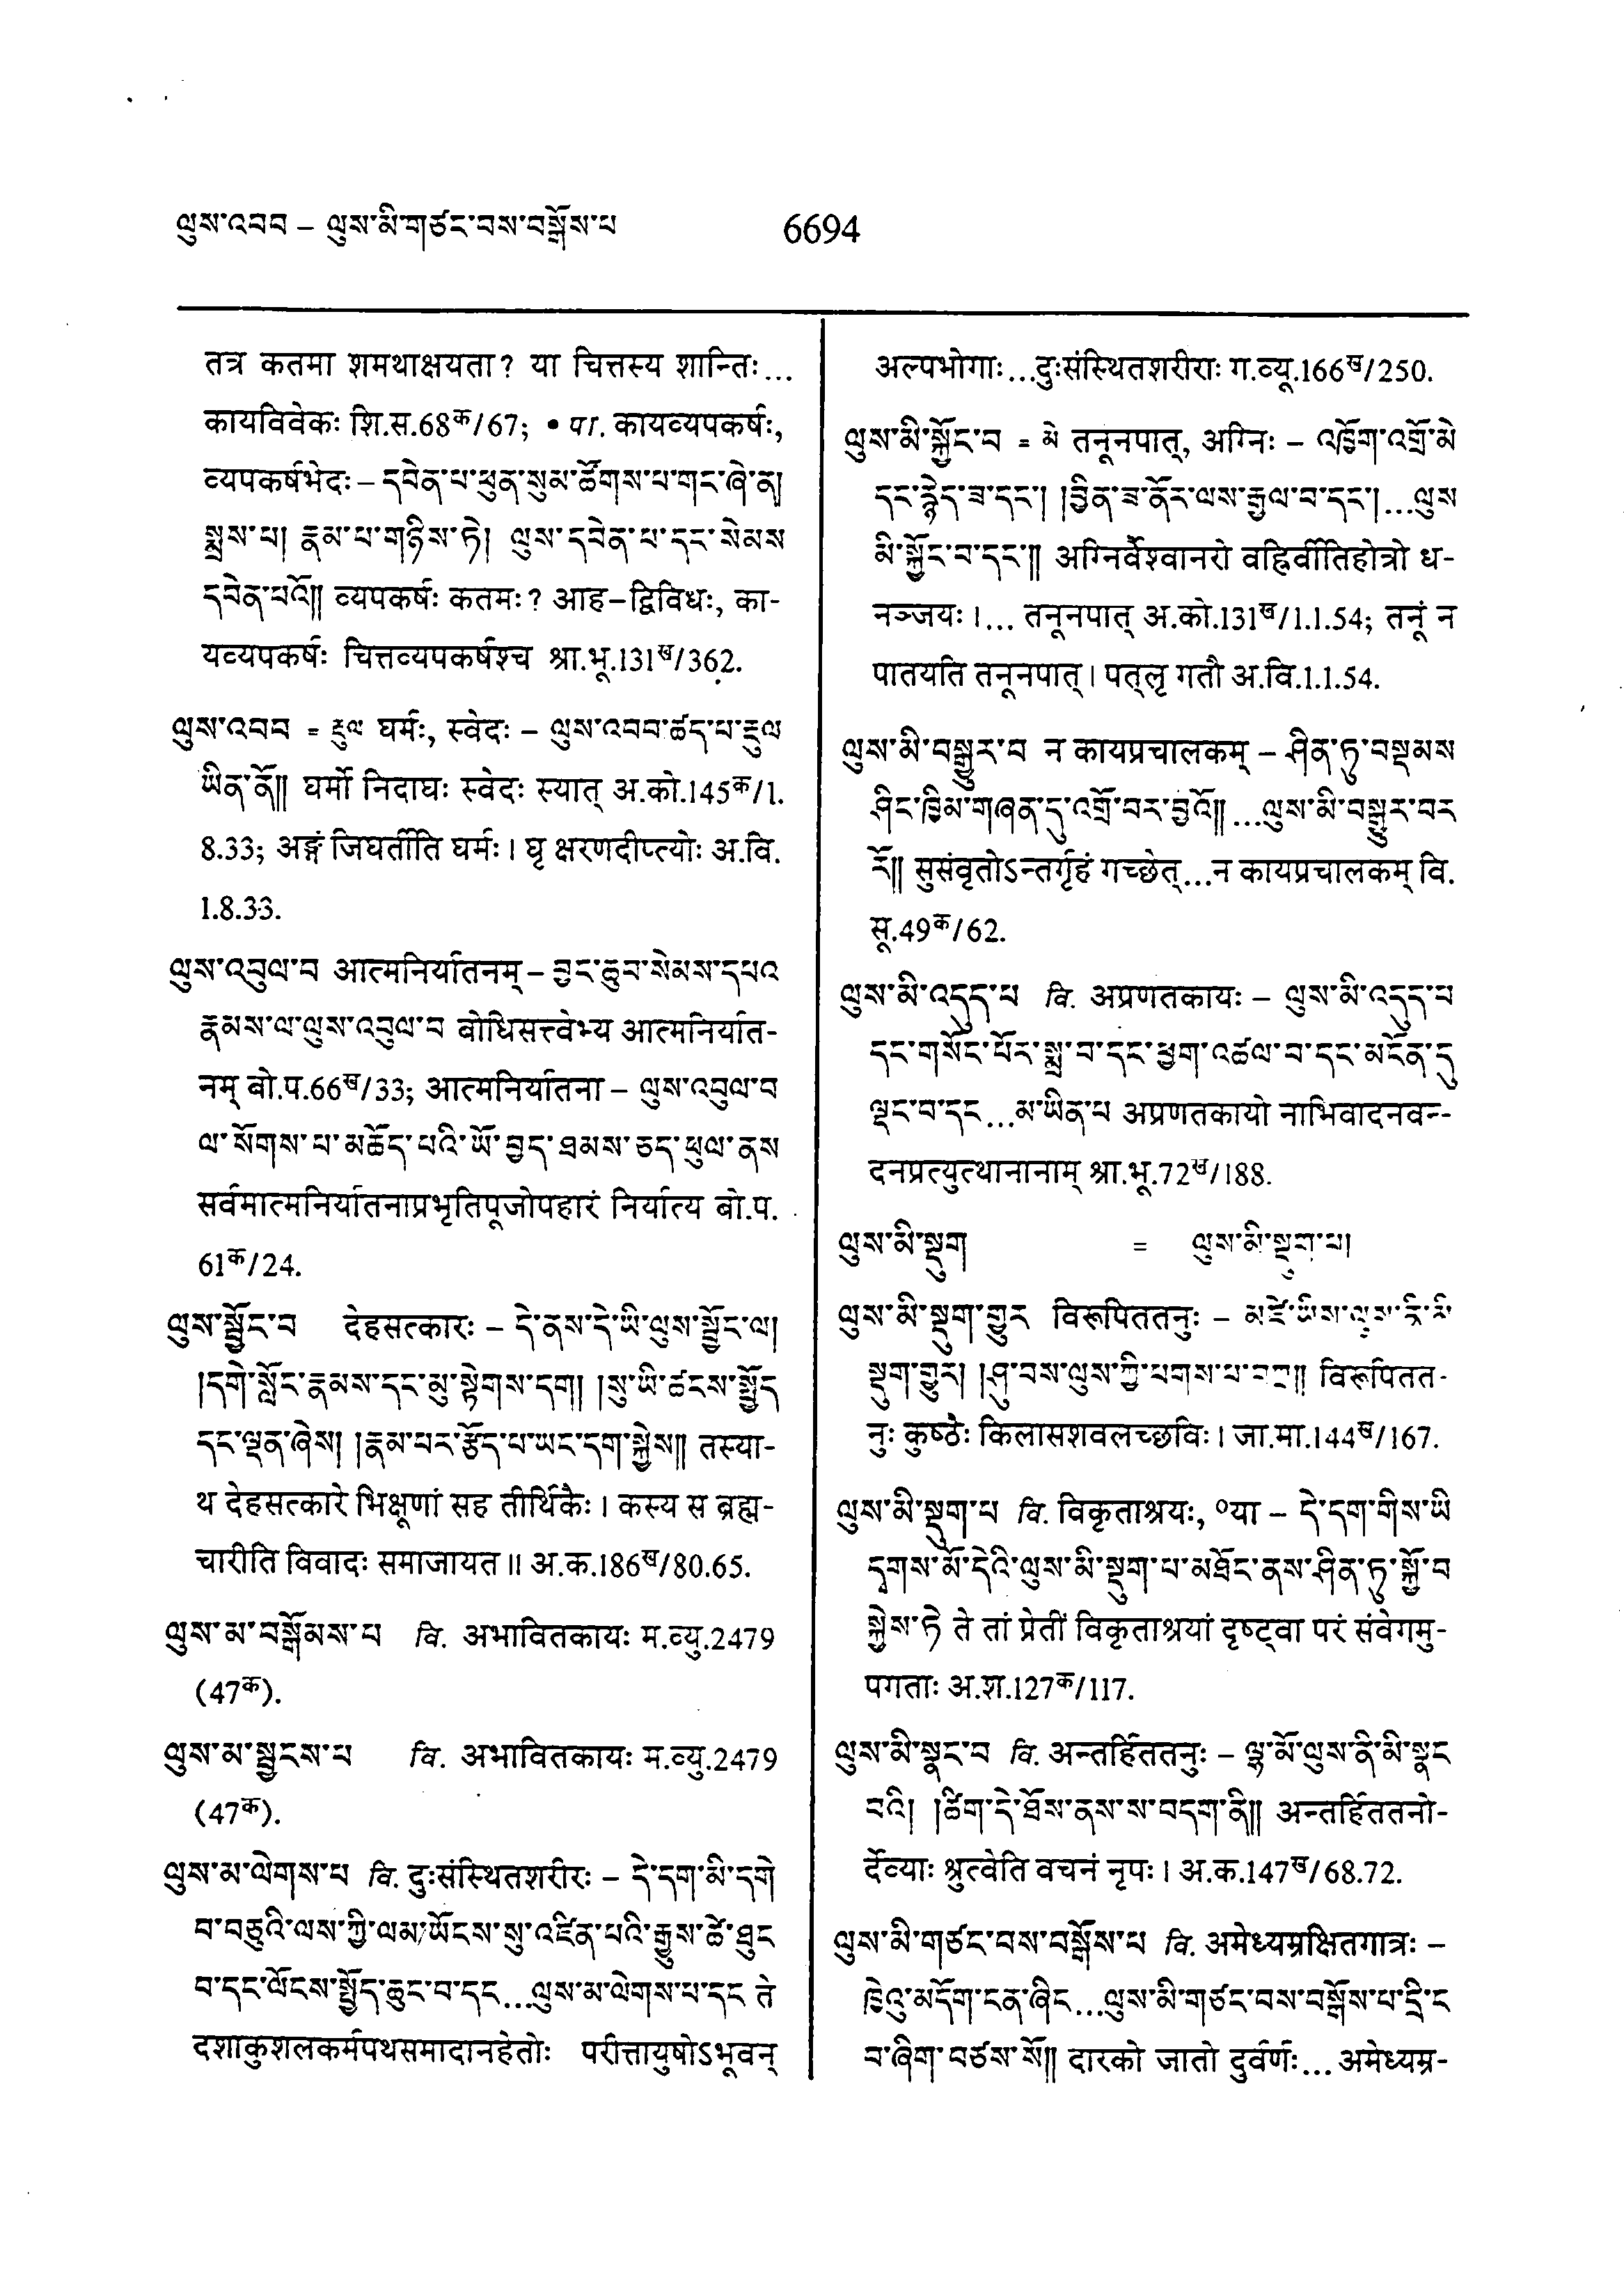 ལུས་འབབ – ལུས་མི་གཙང་བས་བསྒོས་པ 6694
तत्र कतमा शमथाक्षयता? या चित्तस्य शान्तिः...
कायविवेकः शि.स.68क/67; • पा. कायव्यपकर्षः,
व्यपकर्षभेदः – དབེན་པ་ཕུན་སུམ་ཚོགས་པ་གང་ཞེ་ན།
སྨྲས་པ། རྣམ་པ་གཉིས་ཏེ། ལུས་དབེན་པ་དང་སེམས
དབེན་པའོ།། व्यपकर्षः कतमः? आह–द्विविधः, का-
यव्यपकर्षः चित्तव्यपकर्षश्च श्रा.भू.131ख/362.
ལུས་འབབ = རྡུལ घर्मः, स्वेदः – ལུས་འབབ་ཚད་པ་རྡུལ
ཡིན་ནོ།། घर्मो निदाघः स्वेदः स्यात् अ.को.145क/1.
8.33; अङ्गं जिघर्तीति घर्मः। घृ क्षरणदीप्त्योः अ.वि.
1.8.33.
ལུས་འབུལ་བ आत्मनिर्यातनम् – བྱང་ཆུབ་སེམས་དཔའ
རྣམས་ལ་ལུས་འབུལ་བ बोधिसत्त्वेभ्य आत्मनिर्यात-
नम् बो.प.66ख/33; आत्मनिर्यातना – ལུས་འབུལ་བ
ལ་སོགས་པ་མཆོད་པའི་ཡོ་བྱད་ཐམས་ཅད་ཕུལ་ནས
सर्वमात्मनिर्यातनाप्रभृतिपूजोपहारं निर्यात्य बो.प.
61क/24.
ལུས་སྦྱོང་བ देहसत्कारः – དེ་ནས་དེ་ཡི་ལུས་སྦྱོང་ལ།
།དགེ་སློང་རྣམས་དང་མུ་སྟེགས་དག། །སུ་ཡི་ཚངས་སྤྱོད
དང་ལྡན་ཞེས། །རྣམ་པར་རྩོད་པ་ཡང་དག་སྐྱེས།། तस्या-
थ देहसत्कारे भिक्षूणां सह तीर्थिकैः। कस्य स ब्रह्म-
चारीति विवादः समाजायत॥ अ.क.186ख/80.65.
ལུས་མ་བསྒོམས་པ वि. अभावितकायः म.व्यु.2479
(47क).
ལུས་མ་སྦྱངས་པ वि. अभावितकायः म.व्यु.2479
(47क).
ལུས་མ་ལེགས་པ वि. दुःसंस्थितशरीरः – དེ་དག་མི་དགེ
བ་བཅུའི་ལས་ཀྱི་ལམ་ཡོངས་སུ་འཛིན་པའི་རྒྱུས་ཚེ་ཐུང
བ་དང་ལོངས་སྤྱོད་ཆུང་བ་དང...ལུས་མ་ལེགས་པ་དང ते
दशाकुशलकर्मपथसमादानहेतोः परीत्तायुषोऽभूवन्
अल्पभोगाः...दुःसंस्थितशरीराः ग.व्यू.166ख/250.
ལུས་མི་སྐྱོང་བ = མེ तनूनपात्, अग्निः – འཁྱོག་འགྲོ་མེ
དང་རྙེད་ཟ་དང་། །བྱིན་ཟ་ནོར་ལས་རྒྱལ་བ་དང་།...ལུས
མི་སྐྱོང་བ་དང་།། अग्निर्वैश्वानरो वह्निर्वीतिहोत्रो ध-
नञ्जयः।... तनूनपात् अ.को.131ख/1.1.54; तनूं न
पातयति तनूनपात्। पत्लृ गतौ अ.वि.1.1.54.
ལུས་མི་བསྒྱུར་བ न कायप्रचालकम् – ཤིན་ཏུ་བསྡམས
ཤིང་ཁྱིམ་གཞན་དུ་འགྲོ་བར་བྱའོ།། ...ལུས་མི་བསྒྱུར་བར
རོ།། सुसंवृतोऽन्तर्गृहं गच्छेत्...न कायप्रचालकम् वि.
सू.49क/62.
ལུས་མི་འདུད་པ वि. अप्रणतकायः – ལུས་མི་འདུད་པ
དང་གསོང་པོར་སྨྲ་བ་དང་ཕྱག་འཚལ་བ་དང་མངོན་དུ
ལྡང་བ་དང...མ་ཡིན་པ अप्रणतकायो नाभिवादनवन्-
दनप्रत्युत्थानानाम् श्रा.भू.72ख/188.
ལུས་མི་སྡུག = ལུས་མི་སྡུག་པ།
ལུས་མི་སྡུག་གྱུར विरूपिततनुः – མཛེ་ཡིས་ལུས་ནི་མི
སྡུག་གྱུར། །ཤུ་བས་ལུས་ཀྱི་པགས་པ་བཀྲ།། विरूपितत-
नुः कुष्ठैः किलासशवलच्छविः। जा.मा.144ख/167.
ལུས་མི་སྡུག་པ वि. विकृताश्रयः, ०या – དེ་དག་གིས་ཡི
དྭགས་མོ་དེའི་ལུས་མི་སྡུག་པ་མཐོང་ནས་ཤིན་ཏུ་སྐྱོ་བ
སྐྱེས་ཏེ ते तां प्रेतीं विकृताश्रयां दृष्ट्वा परं संवेगमु-
पगताः अ.श.127क/117.
ལུས་མི་སྣང་བ वि. अन्तर्हिततनुः – ལྷ་མོ་ལུས་ནི་མི་སྣང
བའི། །ཚིག་དེ་ཐོས་ནས་ས་བདག་ནི།། अन्तर्हिततनो-
र्देव्याः श्रुत्वेति वचनं नृपः। अ.क.147ख/68.72.
ལུས་མི་གཙང་བས་བསྒོས་པ वि. अमेध्यम्रक्षितगात्रः –
ཁྱེའུ་མདོག་ངན་ཞིང...ལུས་མི་གཙང་བས་བསྒོས་པ་དྲི་ང
བ་ཞིག་བཙས་སོ།། दारको जातो दुर्वर्णः... अमेध्यम्र-